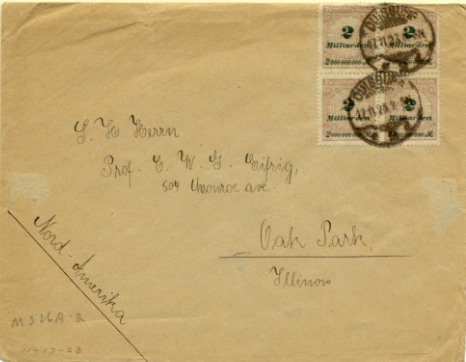 2 2
Milliarden Milliarden
2 000 000 000
DUISBURG
17.11.23
2 2
Milliarden Milliarden
2 000 000 000
DUISBURG
17.11.23
S. H. Herrn
Prof. C. W. G. Eifrig,
504 Monroe ave
Oak Park,
Illinois
Nord-Amerika
11-17-23